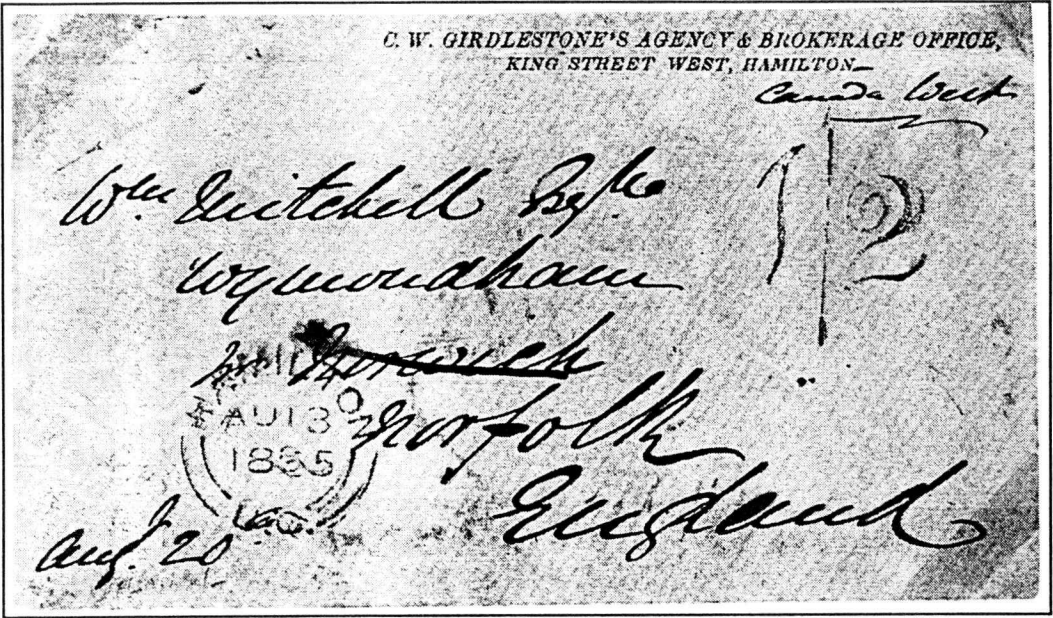 C. W. GIRDLESTONE'S AGENCY & BROKERAGE OFFICE,
KING STREET WEST, HAMILTON
Canada West
1 2
Wm Mitchell Esqre
Wymondham
Norwich
Norfolk
England
AU 13
1855
Aug. 20